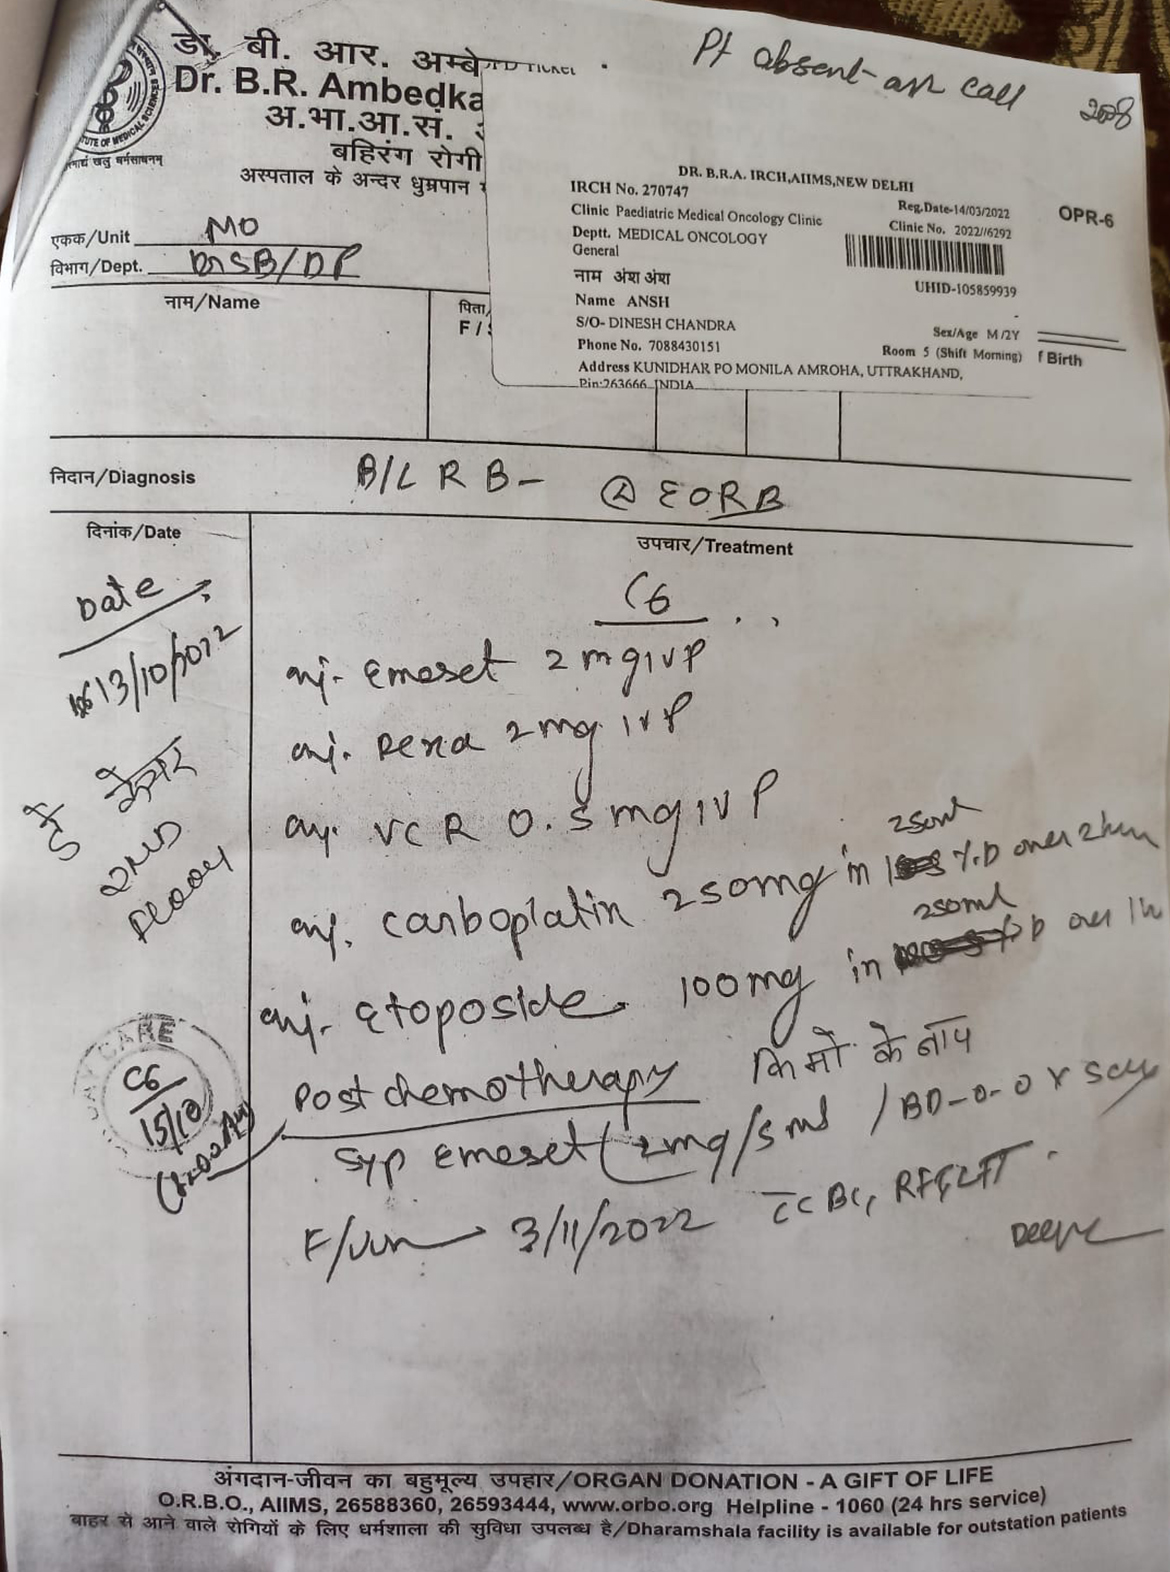 Pt absent call
डा. बी. आर. अम्बे
Dr. B.R. Ambedka
अ.भा.आ.सं.
बहिरंग रोगी
अस्पताल के अन्दर धुम्रपान
एकक/Unit MO
विभाग/Dept.
DR. B.R.A. IRCH,AIIMS,NEW DELHI
IRCH No. 270747
Reg.Date-14/03/2022
Clinic Paediatric Medical Oncology Clinic
Clinic No. 2022//6292
Deptt. MEDICAL ONCOLOGY
General
नाम अंश अंश
UHID-105859939
Name ANSH
S/O- DINESH CHANDRA
Sex/Age M /2Y
Phone No. 7088430151
Room 5 (Shift Morning)
Address KUNIDHAR PO MONILA AMROHA, UTTRAKHAND,
Pin:263666 INDIA
OPR-6
f Birth
नाम/Name
पिता/
F / S
निदान/Diagnosis B/L R B -
दिनांक/Date
उपचार/Treatment
Date
13/10/2022
डे केयर
2ND
FLOOR
C6
inj. Emeset 2 mg IVP
inj. Dexa 2mg IVP
inj. VCR 0.5 mg IVP
250ml
inj. Carboplatin 250mg in D over
250ml
inj. Etoposide 100mg in over
Post chemotherapy
Syp Emeset (2mg/5ml
F/ 3/11/2022 CBC, RFT LFT
CARE
C6
15/10
अंगदान-जीवन का बहुमूल्य उपहार/ORGAN DONATION - A GIFT OF LIFE
O.R.B.O., AIIMS, 26588360, 26593444, www.orbo.org Helpline - 1060 (24 hrs service)
बाहर से आने वाले रोगियों के लिए धर्मशाला की सुविधा उपलब्ध है/Dharamshala facility is available for outstation patients